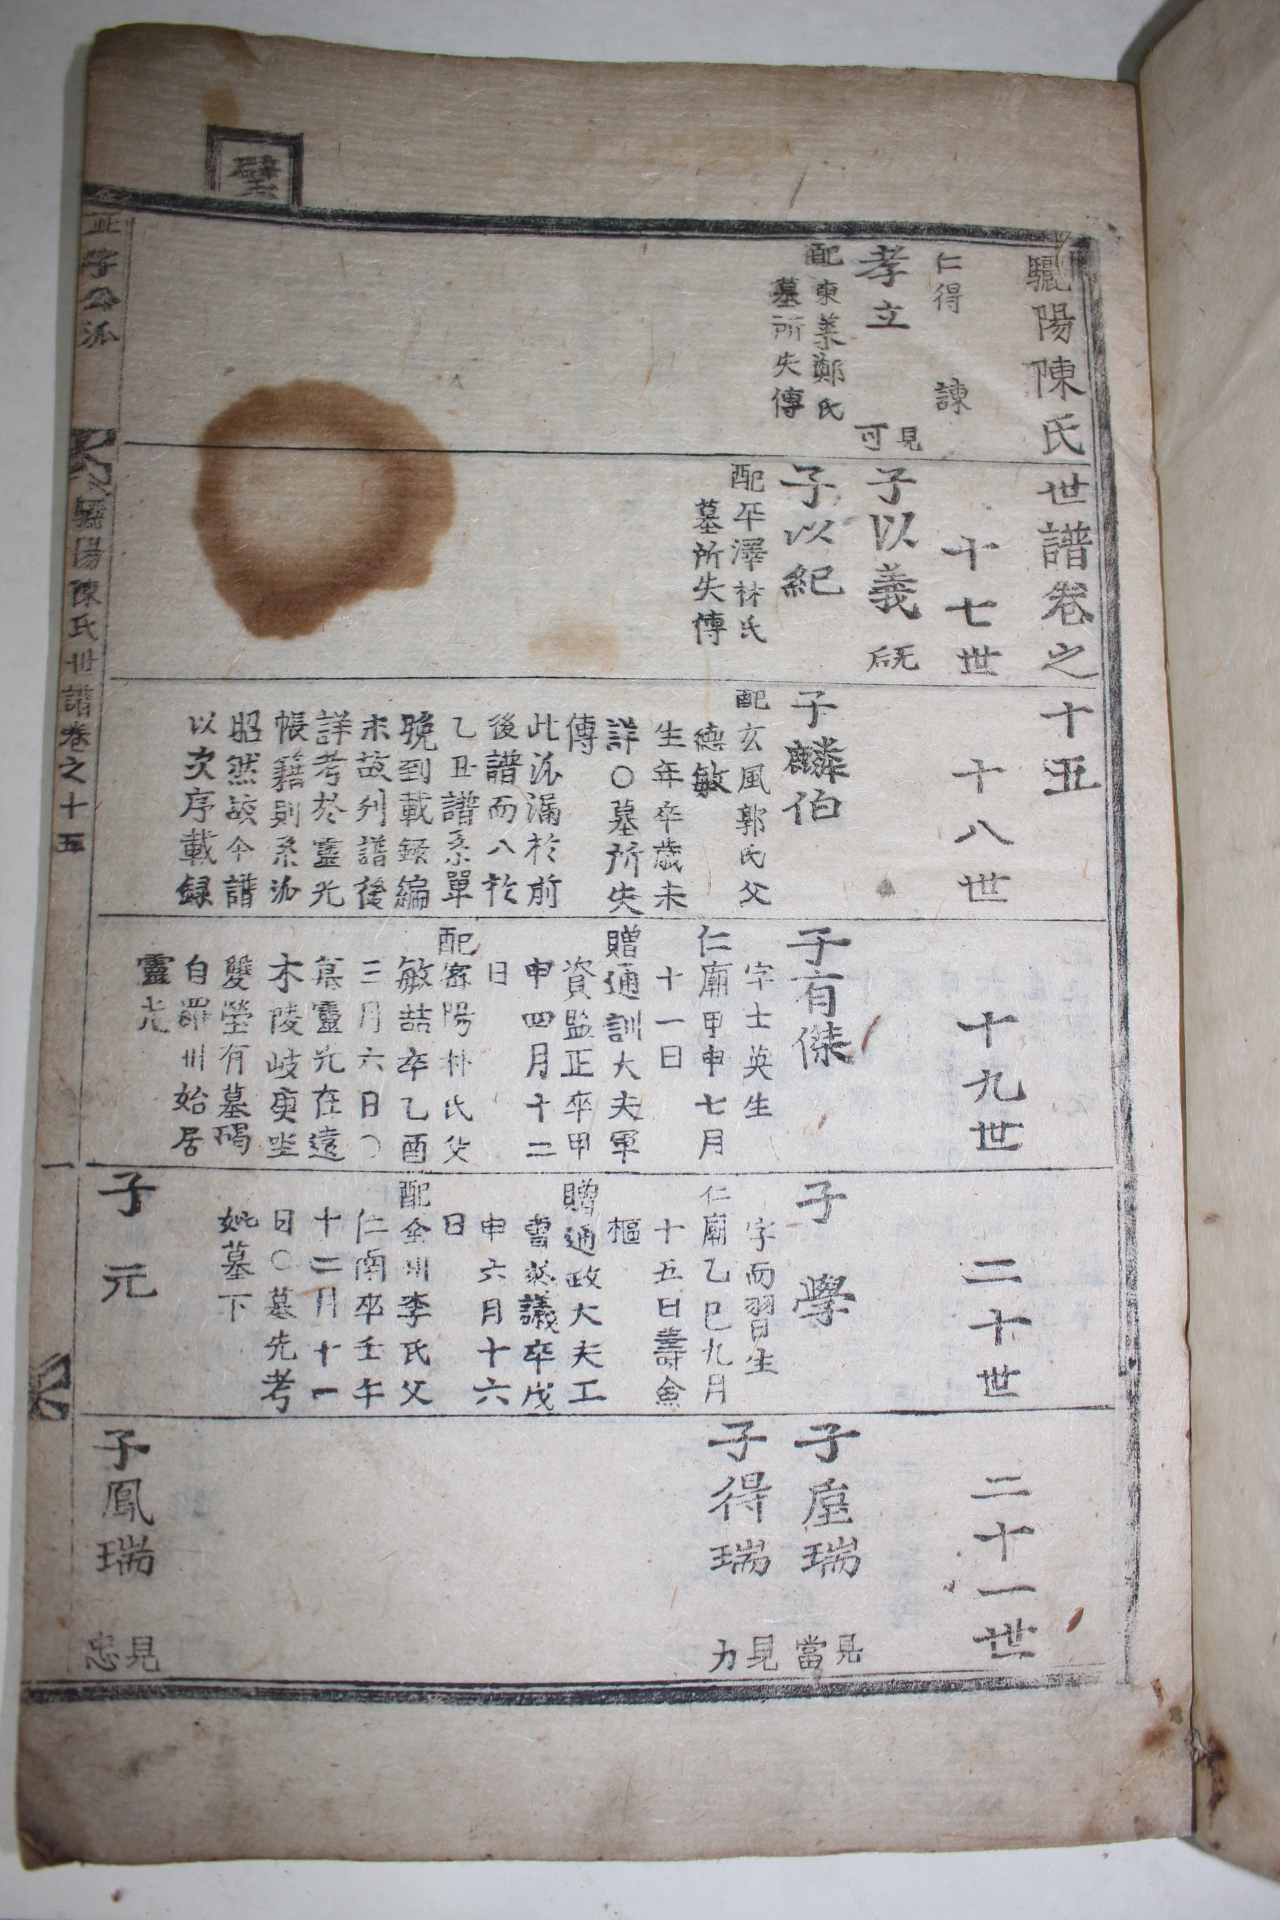 驪陽陳氏世譜卷之十五
仁得
諫
十七世
十八世
十九世
二十世
二十一世
孝立
見可
配東萊鄭氏
墓所失傳
子以義
后无
子以紀
配平澤林氏
墓所失傳
子麟伯
配玄風郭氏父
德敏
生年卒歲未
詳○墓所失
傳
此派漏於前
後譜而八於
乙丑譜系單
晚到載錄編
末故列譜後
詳考於靈光
帳籍則系派
昭然故今譜
以次序載錄
子有傑
字士英生
仁廟甲申七月
十一日
贈通訓大夫軍
資監正卒甲
申四月十二
日
配密陽朴氏父
敏喆卒乙酉
三月六日○
墓靈光在遠
木陵岐庚坐
雙塋有墓碣
自羅州始居
靈光
子學
字而習生
仁廟乙巳九月
十五日壽僉
樞
贈通政大夫工
曹參議卒戊
申六月十六
日
配全州李氏父
仁南卒壬午
十二月十一
日○墓先考
妣墓下
子元
子垕瑞
見當
子得瑞
見力
子鳳瑞
見忠
璧
正字公派
驪陽陳氏世譜卷之十五
一